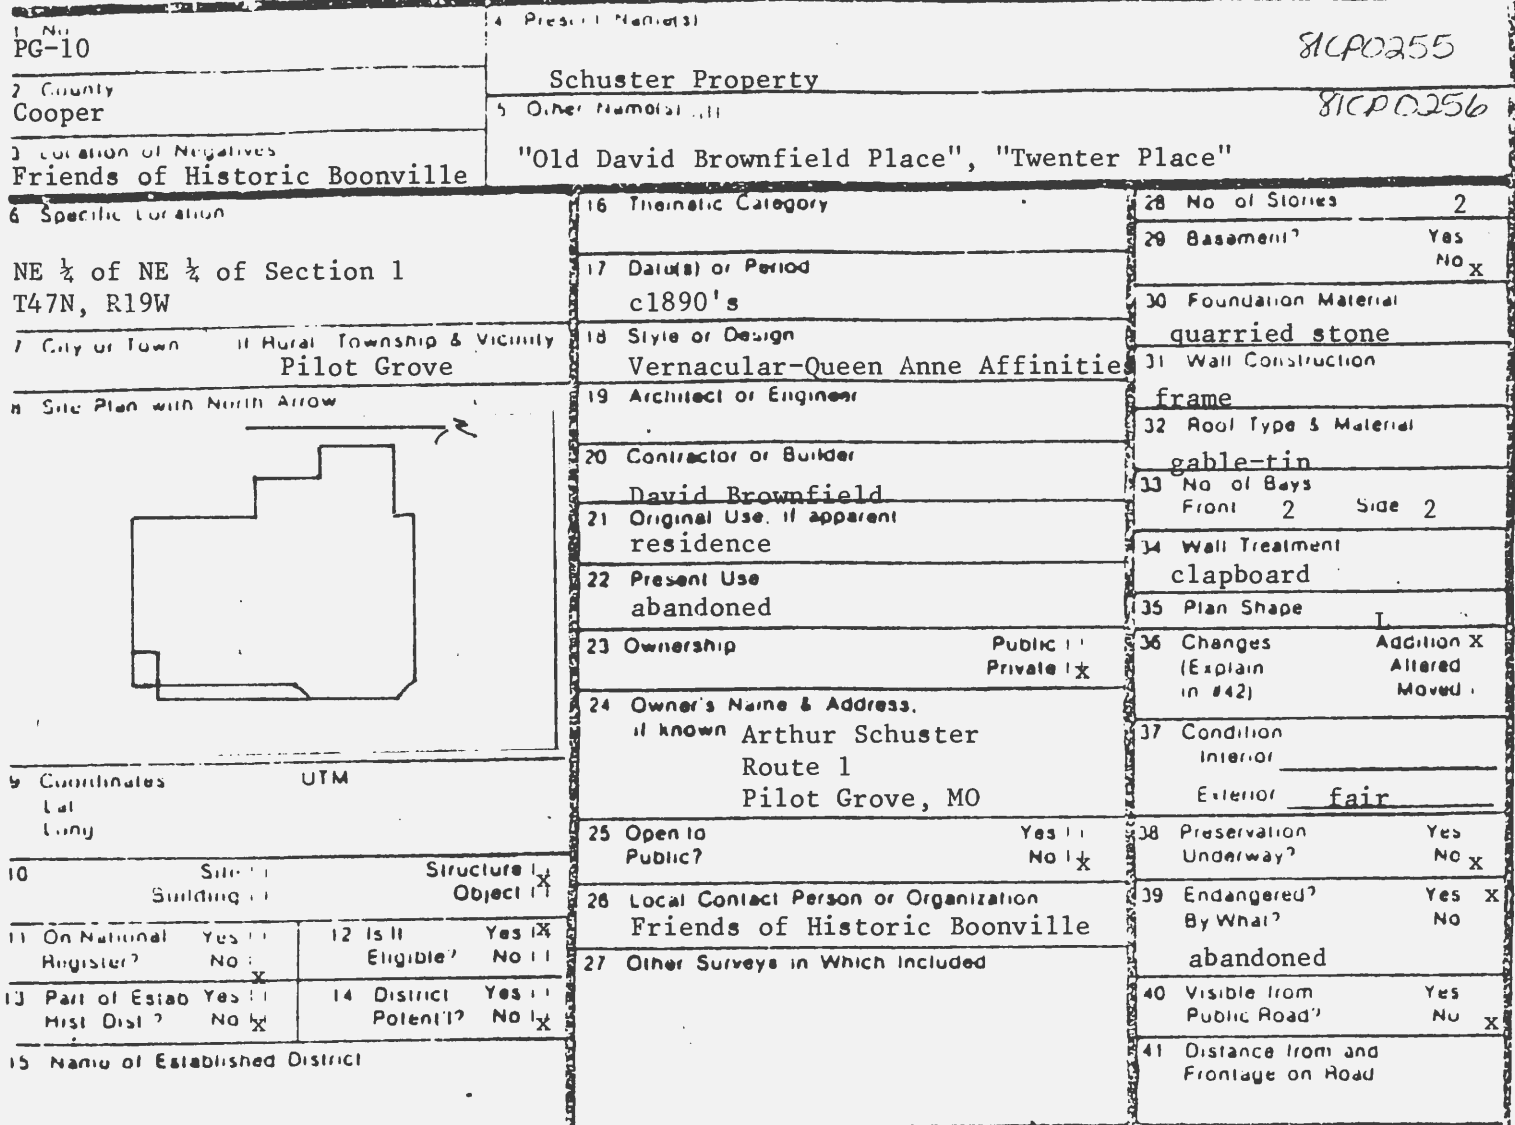 1 No
PG-10
2 County
Cooper
3 Location of Negatives
Friends of Historic Boonville
4 Present Name(s)
81CP0255
Schuster Property
5 Other Name(s)
81CP0256
"Old David Brownfield Place", "Twenter Place"
6 Specific Location
NE ¼ of NE ¼ of Section 1
T47N, R19W
7 City or Town If Rural Township & Vicinity
Pilot Grove
8 Site Plan with North Arrow
9 Coordinates UTM
Lat
Long
10 Site Structure x
Building Object
11 On National Yes
Register? No x
12 Is It Yes x
Eligible? No
13 Part of Estab Yes
Hist Dist ? No x
14 District Yes
Potent'l? No x
15 Name of Established District
16 Thematic Category
17 Date(s) or Period
c1890's
18 Style or Design
Vernacular-Queen Anne Affinitie
19 Architect or Engineer
20 Contractor or Builder
David Brownfield
21 Original Use, if apparent
residence
22 Present Use
abandoned
23 Ownership Public
Private x
24 Owner's Name & Address,
if known Arthur Schuster
Route 1
Pilot Grove, MO
25 Open to Yes
Public? No x
26 Local Contact Person or Organization
Friends of Historic Boonville
27 Other Surveys in Which Included
28 No of Stories 2
29 Basement? Yes
No x
30 Foundation Material
quarried stone
31 Wall Construction
frame
32 Roof Type & Material
gable-tin
33 No of Bays
Front 2 Side 2
34 Wall Treatment
clapboard
35 Plan Shape L
36 Changes Addition x
(Explain Altered
in #42) Moved
37 Condition
Interior
Exterior fair
38 Preservation Yes
Underway? No x
39 Endangered? Yes x
By What? No
abandoned
40 Visible from Yes
Public Road? No x
41 Distance from and
Frontage on Road